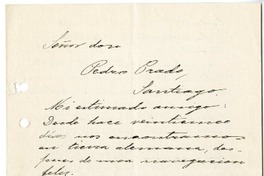 Señor don
Pedro Prado,
Santiago.
Mi estimado amigo:
Desde hace veinticinco
días nos encontramos
en tierra alemana, des-
pues de una navegacion
feliz.